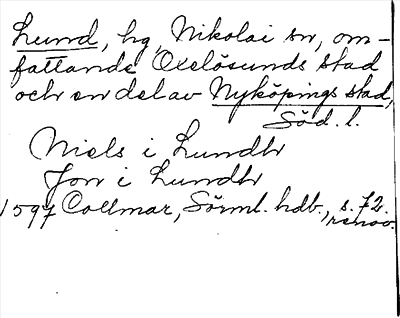 Lund, hg, Nikolai sn, om-
fattande Oxelösunds stad
och en del av Nyköpings stad,
Söd. l.
Niels i Lundh
Jon i Lundh
1597 Collmar, Sörml. hdb., s. 72.
renov.